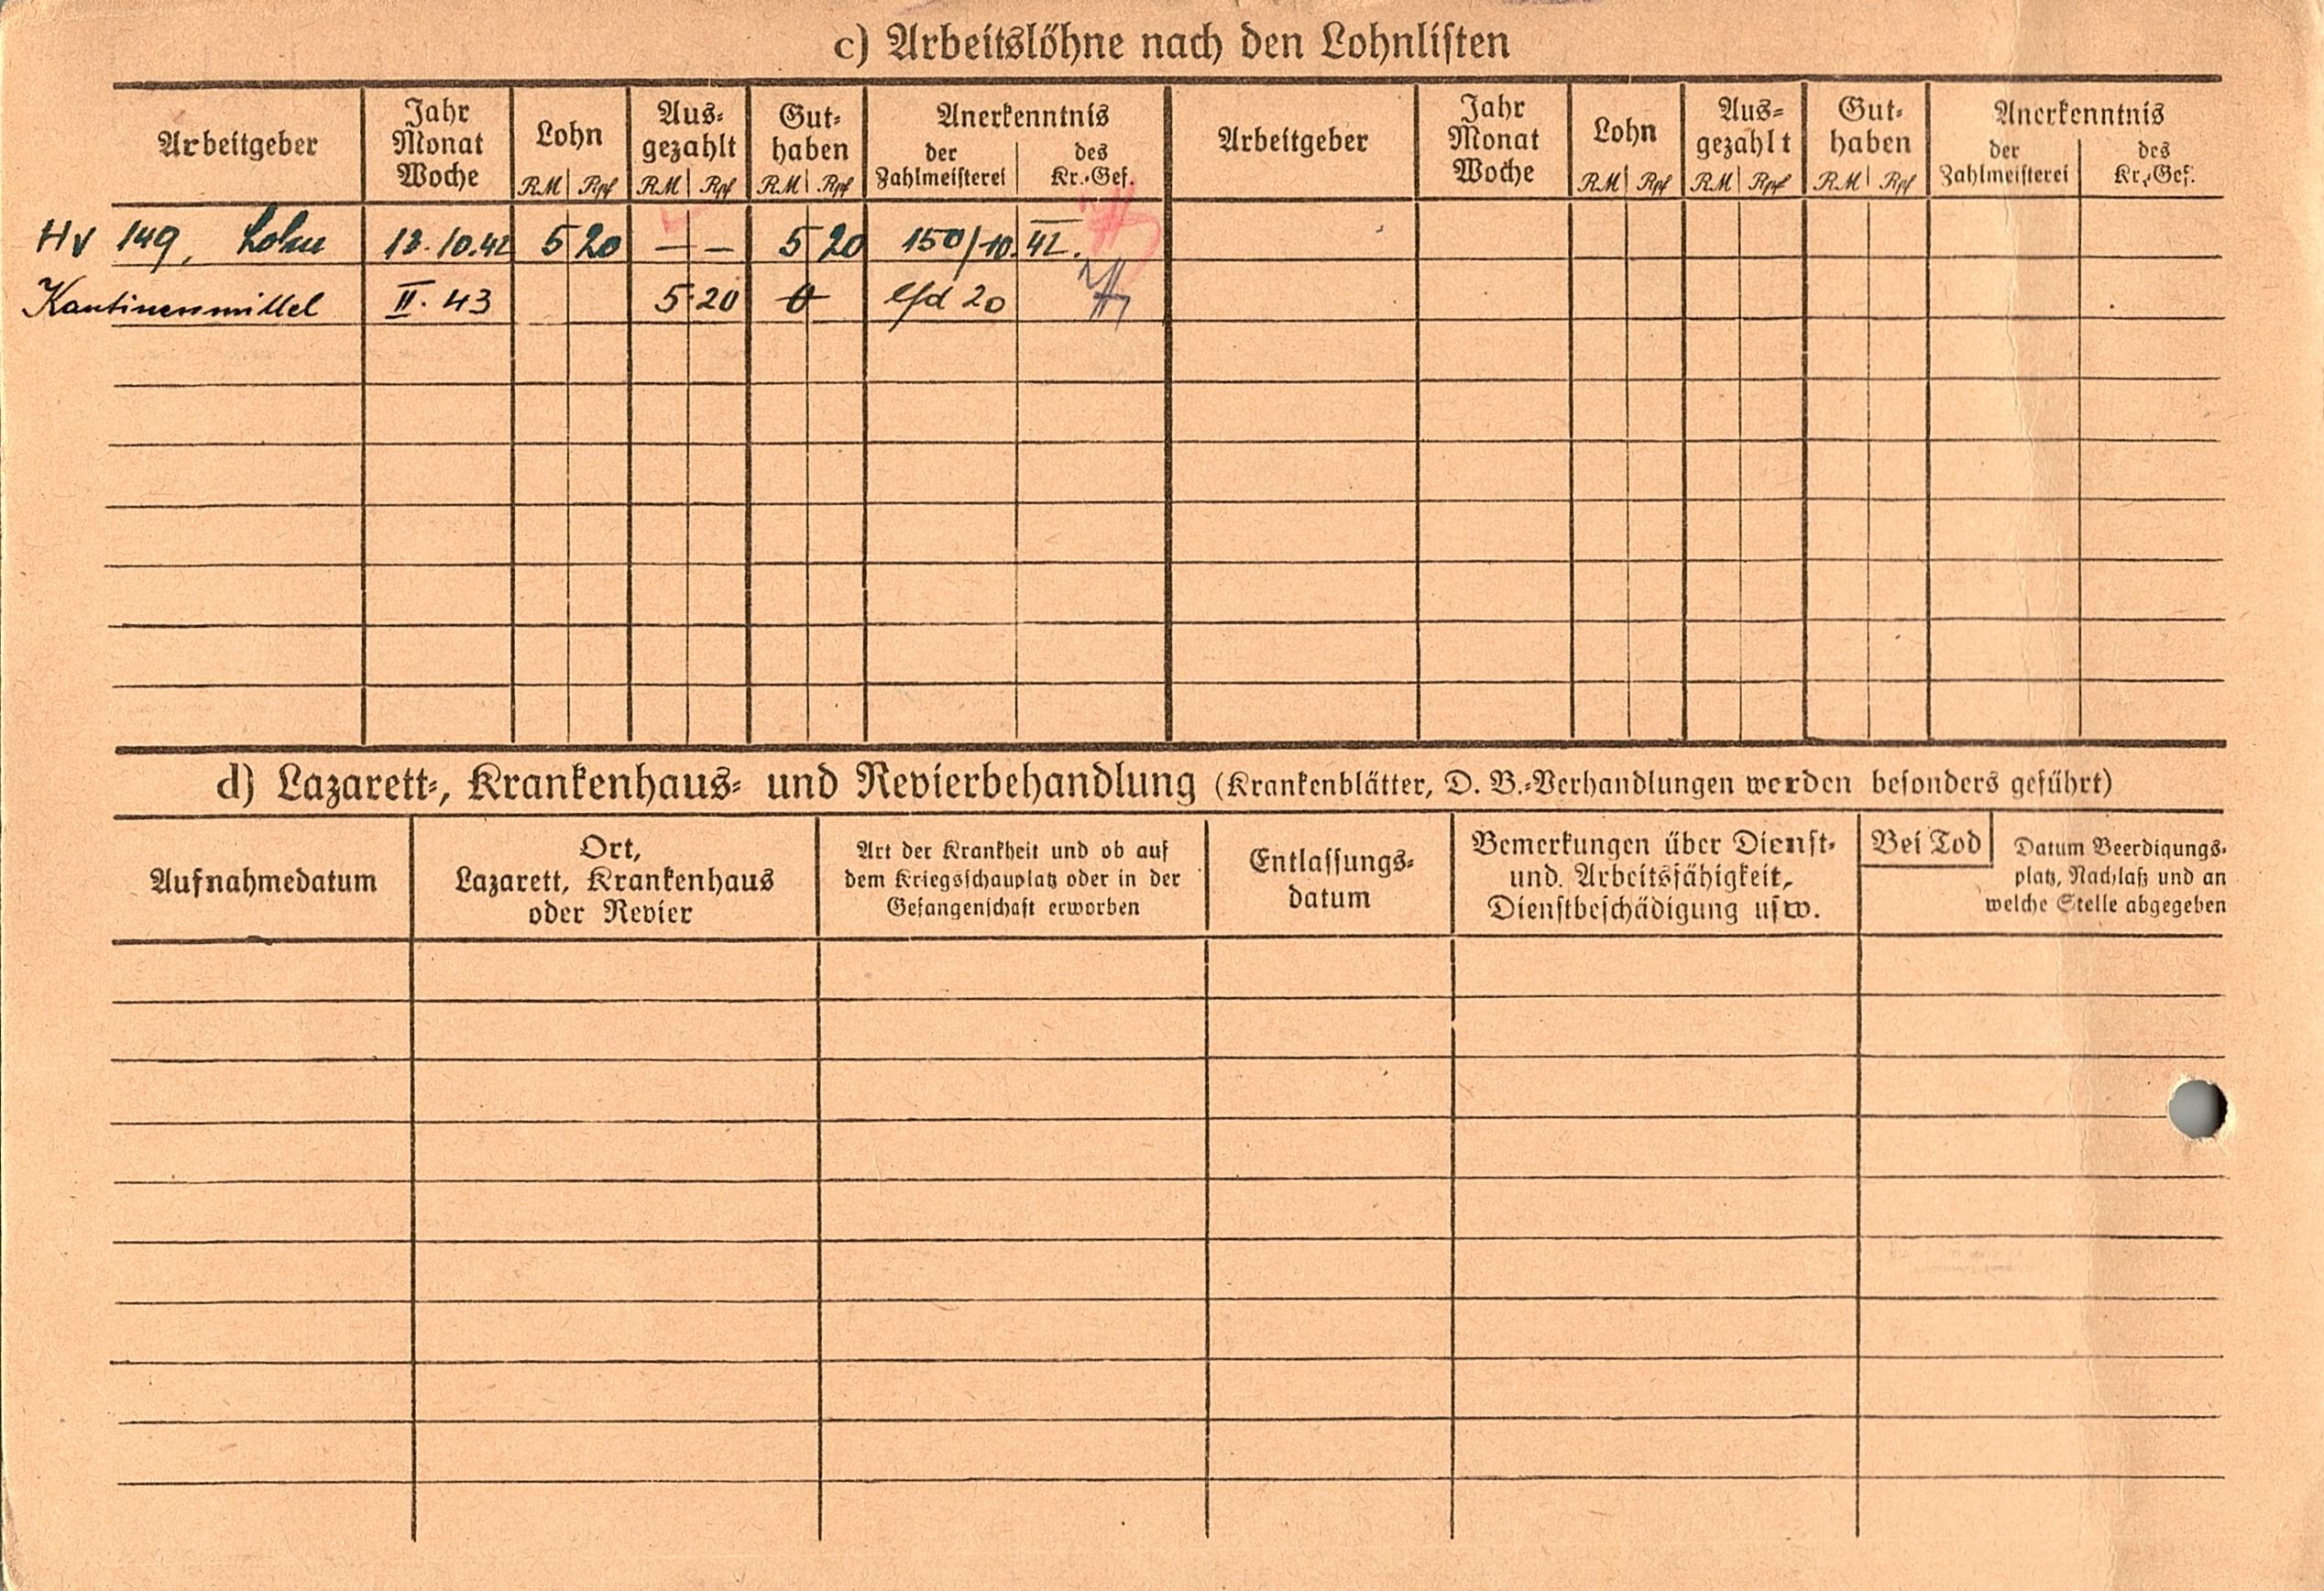 c) Arbeitslöhne nach den Lohnlisten
Arbeitgeber
Jahr
Monat
Woche
Lohn
RM Rpf
Aus-
gezahlt
RM Rpf
Gut-
haben
RM Rpf
Anerkenntnis
der
Zahlmeisterei
des
Kr.-Gef.
Arbeitgeber
Jahr
Monat
Woche
Lohn
RM Rpf
Aus-
gezahlt
RM Rpf
Gut-
haben
RM Rpf
Anerkenntnis
der
Zahlmeisterei
des
Kr.-Gef.
HV 149, Lohn 18.10.42 5 20 — — 5 20 150/10.42.
Kantinenmittel II. 43 5.20 0 lfd 20
d) Lazarett-, Krankenhaus- und Revierbehandlung (Krankenblätter, D. B.-Verhandlungen werden besonders geführt)
Aufnahmedatum
Ort,
Lazarett, Krankenhaus
oder Revier
Art der Krankheit und ob auf
dem Kriegsschauplatz oder in der
Gefangenschaft erworben
Entlassungs-
datum
Bemerkungen über Dienst-
und Arbeitsfähigkeit,
Dienstbeschädigung usw.
Bei Tod
Datum Beerdigungs-
platz, Nachlaß und an
welche Stelle abgegeben